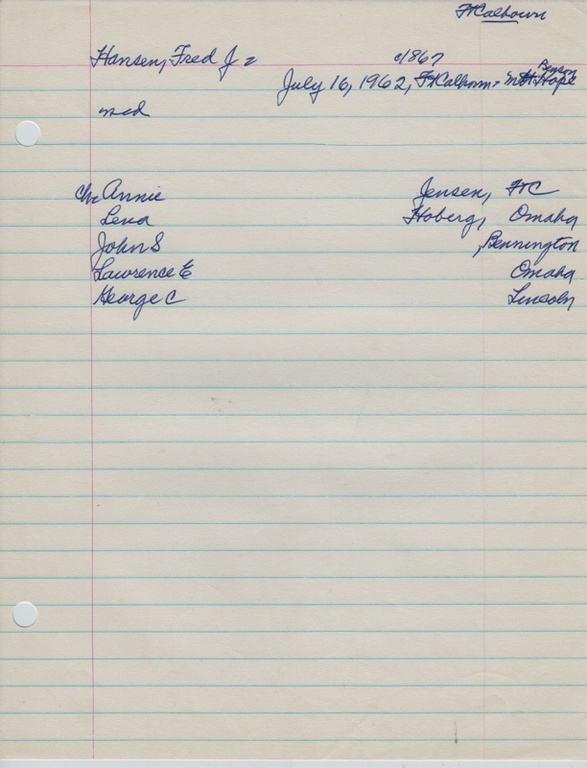 Ft Calhoun
Hansen, Fred J = c/867
July 16, 1962, Ft Calhoun - Mt. Hope Benson
md
Ch: Annie Jensen, Ft C
Lena Hoberg, Omaha
John S , Bennington
Lawrence E Omaha
George C Lincoln